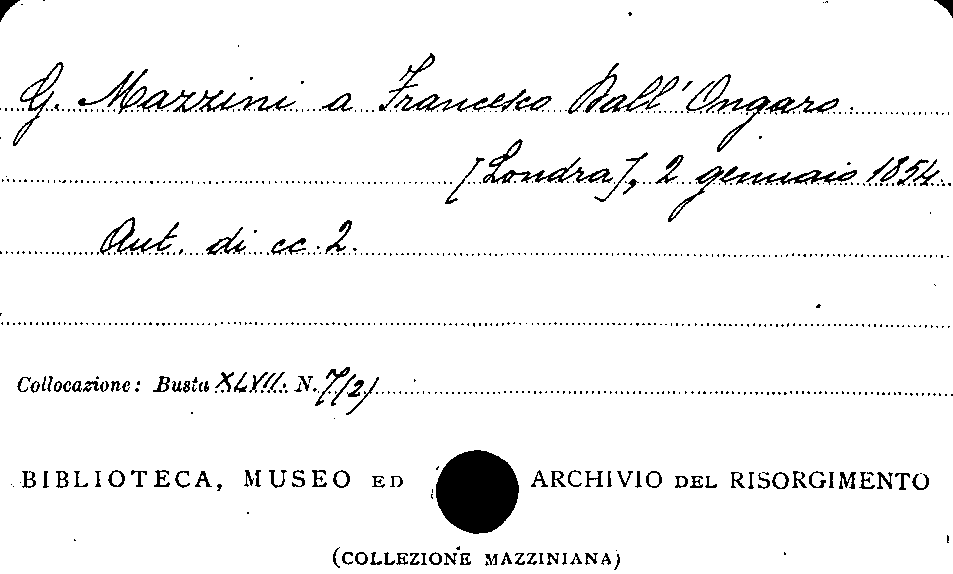 G. Mazzini a Francesco Dall'Ongaro.
[Londra], 2 gennaio 1854.
Aut. di cc. 2.
Collocazione: Busta XLVII. N. 7/2)
BIBLIOTECA, MUSEO ED ARCHIVIO DEL RISORGIMENTO
(COLLEZIONE MAZZINIANA)